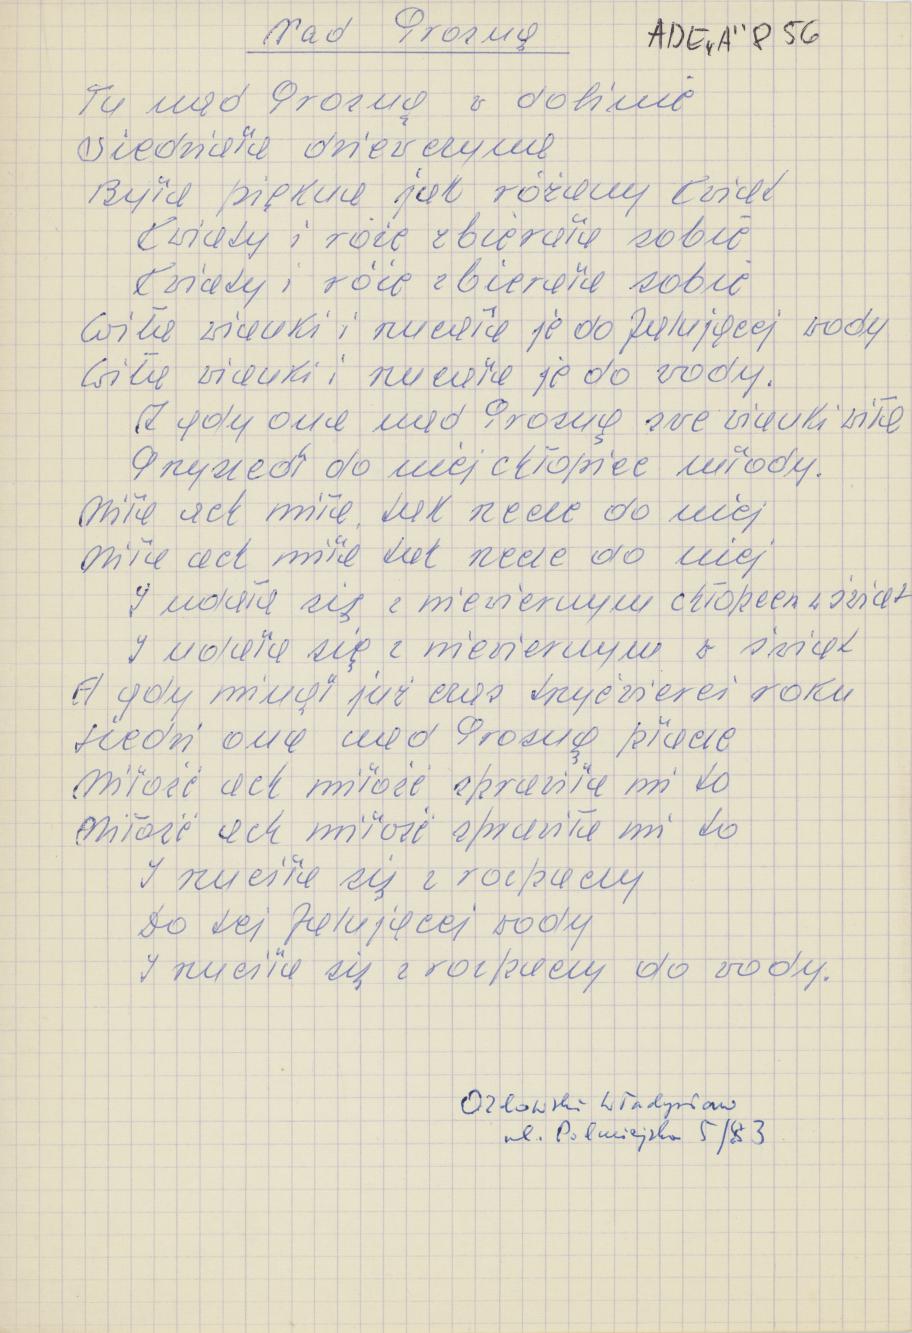 Nad Prosną
ADE„A" 856
Tu nad Prosną w dolinie
Siedziała dziewczyna
Była piękna jak różany kwiat
Kwiaty i róże zbierała sobie
Kwiaty i róże zbierała sobie
Wiła wianki i rzucała je do falującej wody
Wiła wianki i rzucała je do wody.
A gdy ona nad Prosną swe wianki wiła
Przyszedł do niej chłopiec młody.
Miła ach miła, tak rzecze do niej
Miła ach miła tak rzecze do niej
I udała się z niewiernym chłopcem w świat
I udała się z niewiernym w świat
A gdy minął już czas trzyćwierci roku
Siedzi ona nad Prosną płacze
Miłość ach miłość sprawiła mi to
Miłość ach miłość sprawiła mi to
I rzuciła się z rozpaczy
Do tej falującej wody
I rzuciła się z rozpaczy do wody.
Orłowski Władysław
ul. Polmiejska 5/